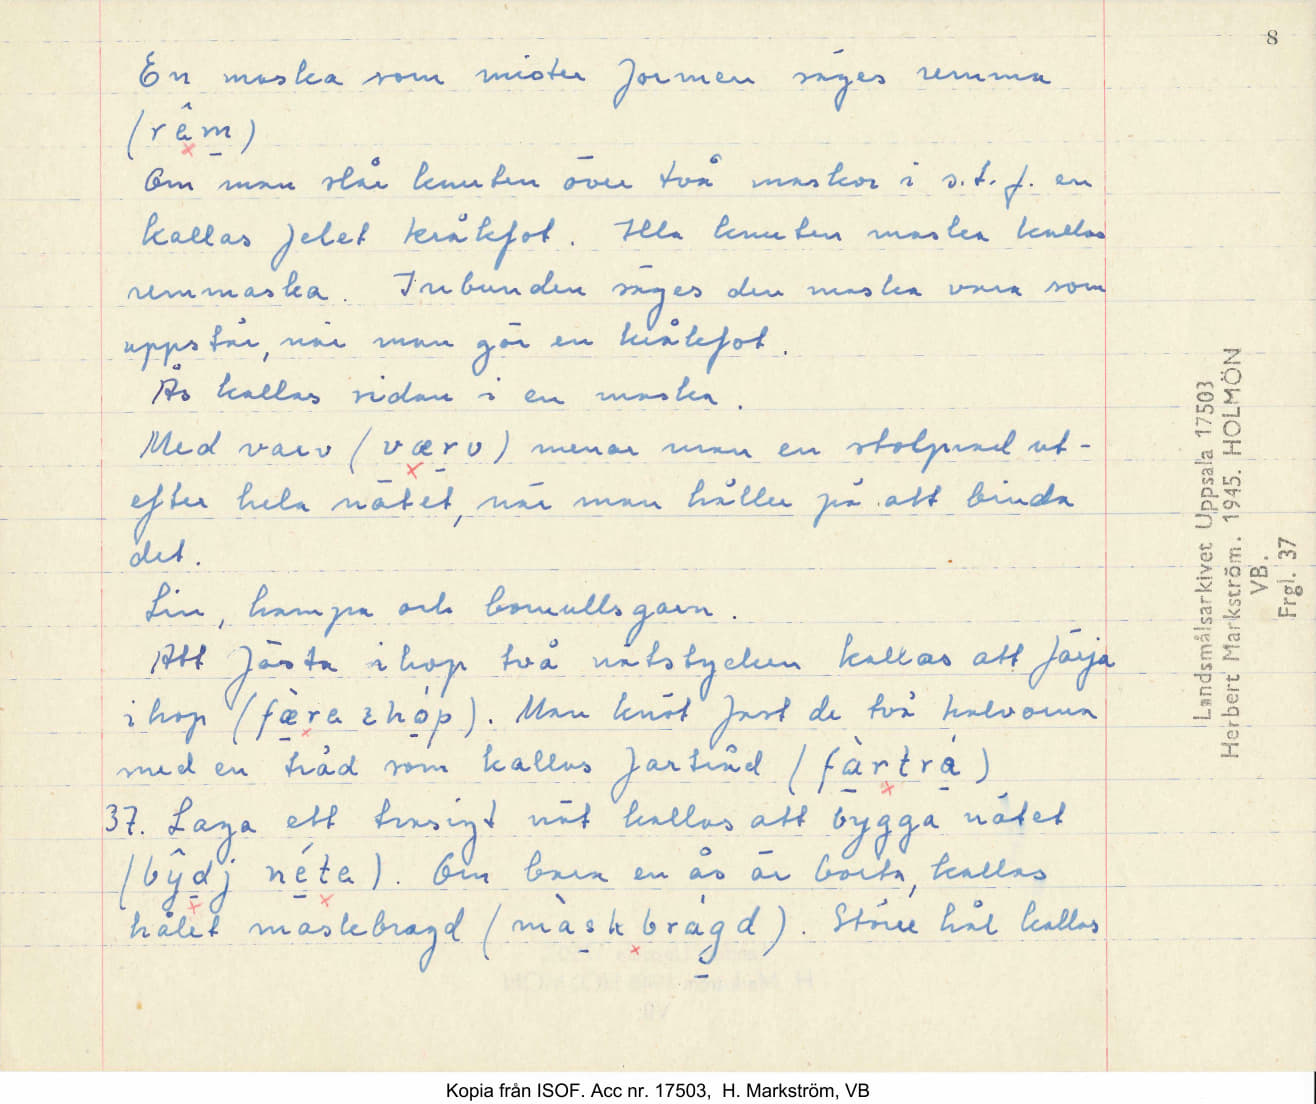 8
En maska som mister formen säges remma
(rêm)
Om man slår knuten över två maskor i s.t.f. en
kallas felet kråkfot. Illa knuten maska kallas
remmaska. Inbunden säges den maska vara som
uppstår, när man gör en kråkfot.
Ås kallas sidan i en maska.
Med varv (værv) menar man en stolprad ut-
efter hela nätet, när man håller på att binda
det.
Lin, hampa och bomullsgarn.
Att fästa ihop två nätstycken kallas att färja
ihop (fære ihop). Man knöt fast de två halvorna
med en tråd som kallas fartråd (fàrtrá)
37. Laga ett trasigt nät kallas att bygga nätet
(bŷdj néte). Om bara en ås är borta, kallas
hålet maskebragd (màskbràgd). Större hål kallas
Landsmålsarkivet Uppsala 17503
Herbert Markström. 1945. HOLMÖN
VB.
Frgl. 37
Kopia från ISOF. Acc nr. 17503, H. Markström, VB